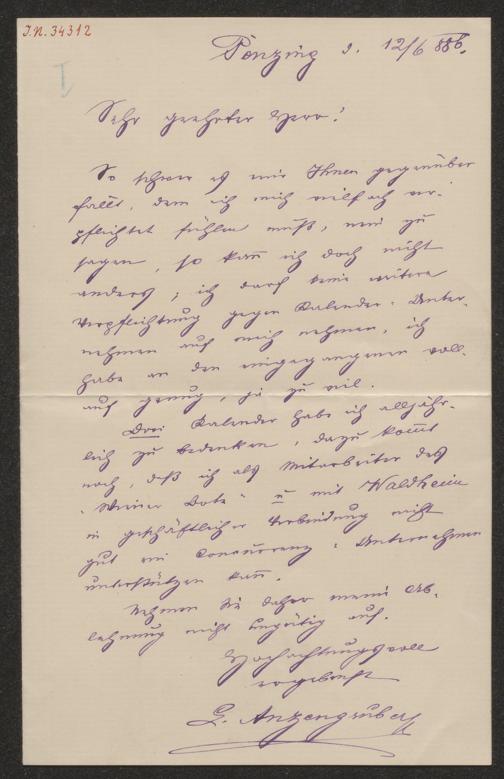 I.N. 34312
I
Penzing d. 12/6 886.
Sehr geehrter Herr!
So schwer es mir Ihnen gegenüber
fällt, dem ich mich vielfach ver-
pflichtet fühlen muß, nein zu
sagen, so kann ich doch nicht
anders; ich darf keine weitere
Verpflichtung gegen Kalender-Unter-
nehmen auf mich nehmen, ich
habe an den eingegangenen voll-
auf genug, ja zu viel.
Drei Kalender habe ich alljähr-
lich zu bedenken, dazu kommt
noch, daß ich als Mitarbeiter des
"Wiener Bote" u mit Waldheim
in geschäftlicher Verbindung nicht
gut ein Concurrenz-Unternehmen
unterstützen kann.
Nehmen Sie daher meine Ab-
lehnung nicht ungütig auf.
Hochachtungsvoll
ergebenst
L. Anzengruber